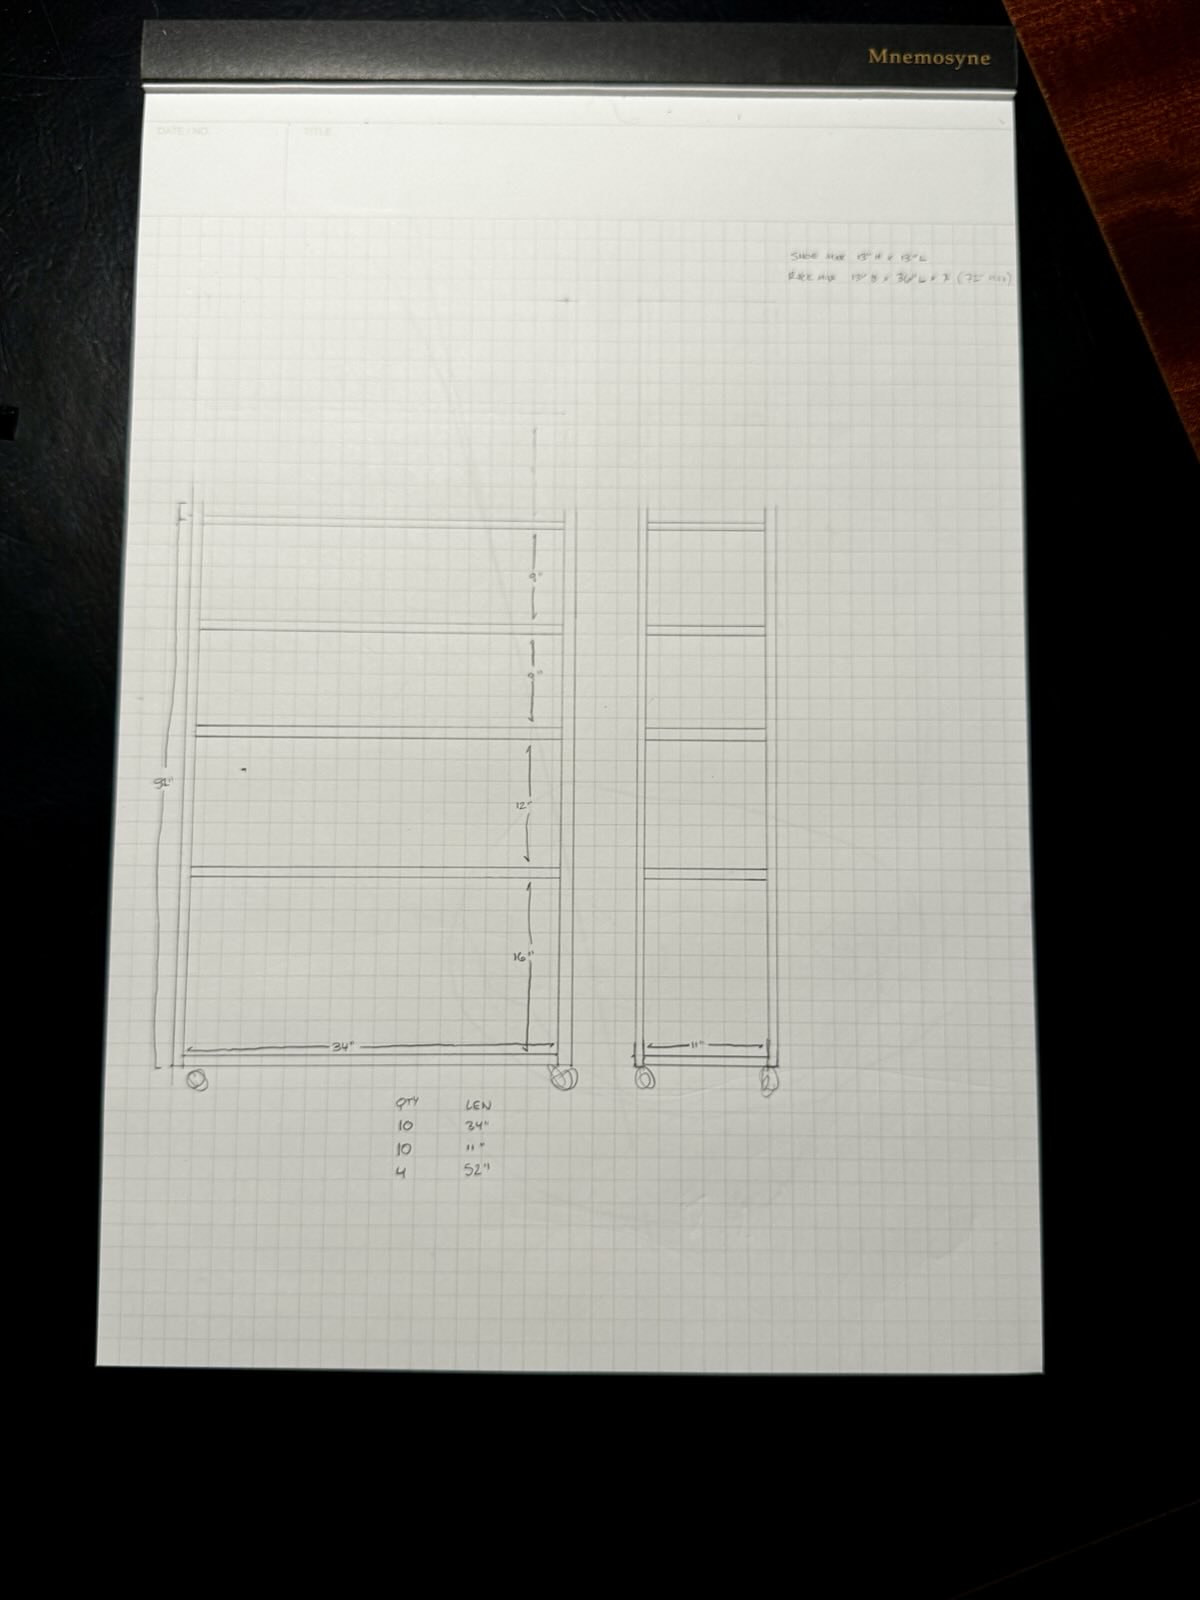 Mnemosyne
DATE / NO.
TITLE
SHOE MAX 13" H x 13" L
RACK MAX 13" D x 36" L x (72" MAX)
9"
9"
12"
16"
34"
11"
QTY LEN
10 34"
10 11"
4 52"